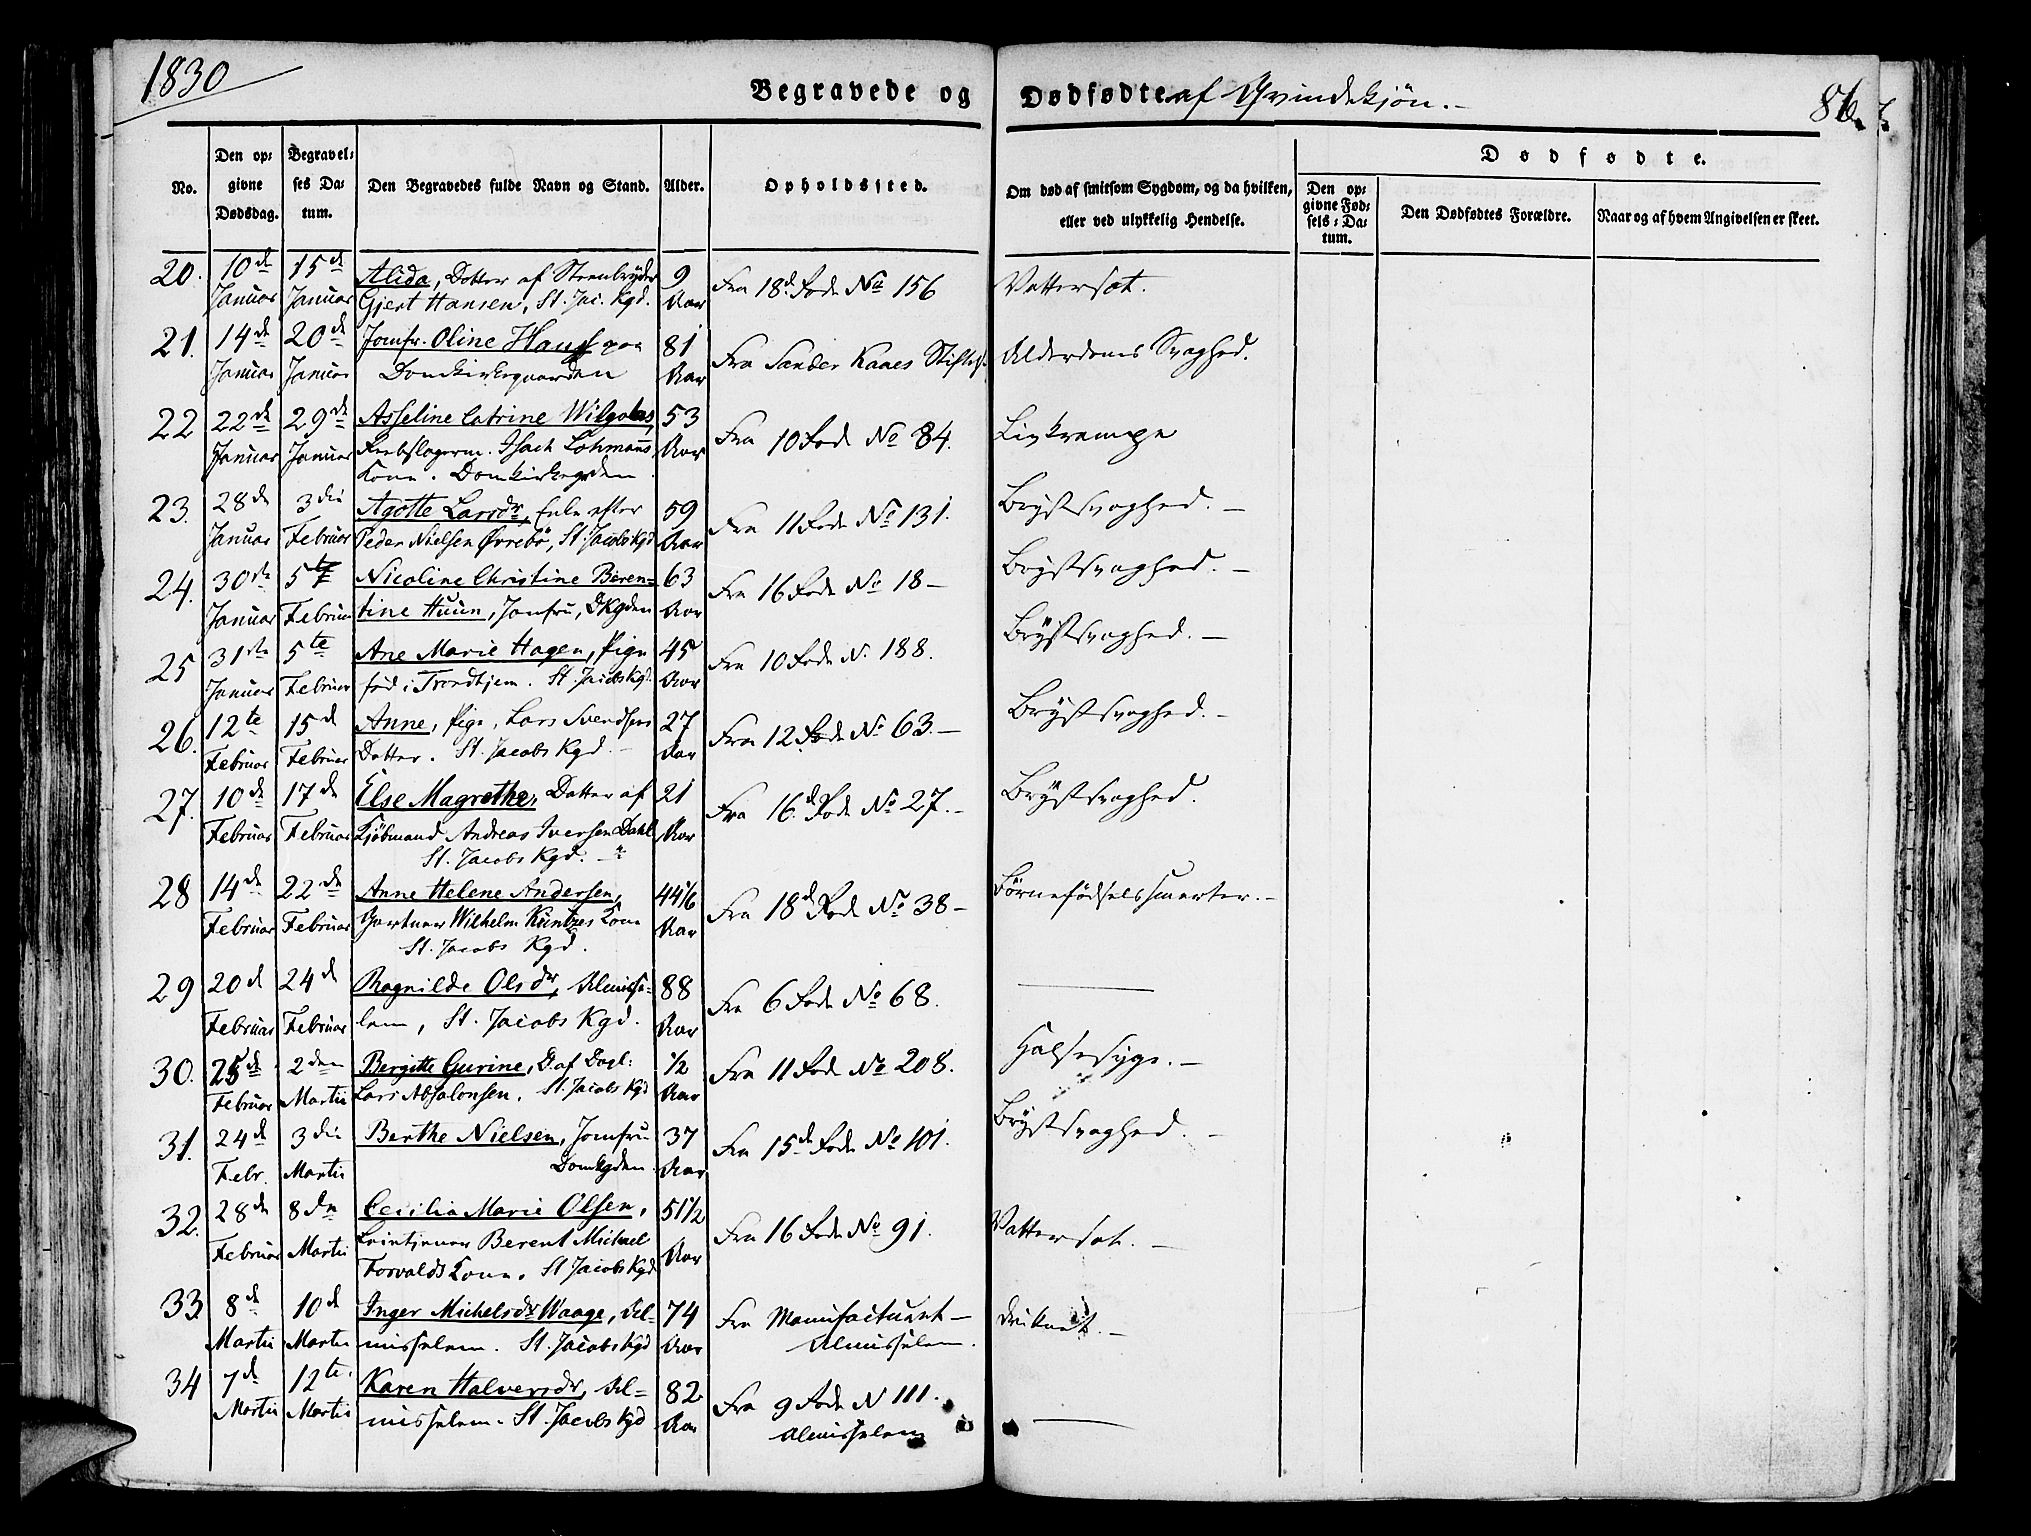 1830
Begravede og Dødfødte af Qvindekjøn.
86.
No.
Den opgivne Dødsdag.
Begravelses Datum.
Den Begravedes fulde Navn og Stand.
Alder.
Opholdssted.
Om død af smitsom Sygdom, og da hvilken, eller ved ulykkelig Hendelse.
Dødfødte.
Den opgivne Fødsels-Datum.
Den Dødfødtes Forældre.
Naar og af hvem Angivelsen er skeet.
20. 10de 15de Alida, Dotter af Steenbryder 9 Fra 18d. Rode No 156 Vattersot.
Januar Januar Gjert Hansen, St. Jac. Kgd. Aar
21. 14de 20de Jomfr. Oline Hauf paa 81 Fra Sander Kaaes Stiftels. Alderdoms Svaghed.
Januar Januar Domkirkegaarden Aar
22 22de 29de Asseline Catrine Wilgohs, 53 Fra 10 Rode No 84. Livkrampe
Januar Januar Reebslagerm. Isach Lohmanns Aar
Kone. Domkirkegrden.
23. 28de 3die Agotte Larsdr, Enke efter 59 Fra 11 Rode No 131. Brystsvaghed. —
Januar Februar Peder Nielsen Øvrebö, St. Jacobs Kgd Aar
24. 30te 5te Nicoline Christine Beren= 63 Fra 16 Rode No 18 — Brystsvaghed. —
Januar Februar tine Huun, Jomfru, DKgden Aar
25 31te 5te Ane Marie Hagen, Pige 45 Fra 10 Rode N. 188. Brystsvaghed. —
Januar Februar fød i Trondhjem. St. Jacobs Kgd. Aar
26. 12te 15d Anne, Pige, Lars Svendsens 27 Fra 12. Rode No 63. — Brystsvaghed. —
Februar Februar Datter. St. Jacobs Kgd. — Aar
27. 10de 17de Else Magrethe, Datter af 21 Fra 16.d Rode No 27. — Brystsvaghed.
Februar Februar Kjøbmand Andreas Iversen Dahl Aar
St. Jacobs Kgd. —
28 14de 22de Anne Helene Andersen, 44 1/6 Fra 18d Rode No 38 — Børnefødselssmerter. —
Februar Februar Gartner Wilhelm Küntzes Kone Aar
St. Jacobs Kgd.
29 20d 24d Ragnilde Olsdr, Almisse= 88 Fra 6 Rode No 68. —
Februar Februar lem, St. Jacobs Kgd. Aar
30. 25de 2den Bergitte Gurine, D. af Dagl: 1/2 Fra 11 Rode No 208. Halssyge. —
Februar Martii Lars Absalonsen. St. Jacobs Kgd Aar
31. 24d 3die Berthe Nielsen, Jomfru 37 Fra 15de Rode No 101. Brystsvaghed. —
Febr. Martii Domkgden. Aar
32. 28de 8de Cecilia Marie Olsen, 51 1/2 Fra 16 Rode No 91. Vattersot. —
Februar Martii Leietjener Berent Michael Aar
Forvalds Kone. St Jacobs Kgd
33. 8de 10d Inger Michelsdr Waage, Al= 74 Fra Manufacturet — —
Martii Martii misselem. St. Jacobs Kgd Aar Almisselem.
34 7de 12te. Karen Halversdr, Al= 82 Fra 9 Rode N 111. —
Martii Martii misselem. St. Jacobs Kgd Aar Almisselem